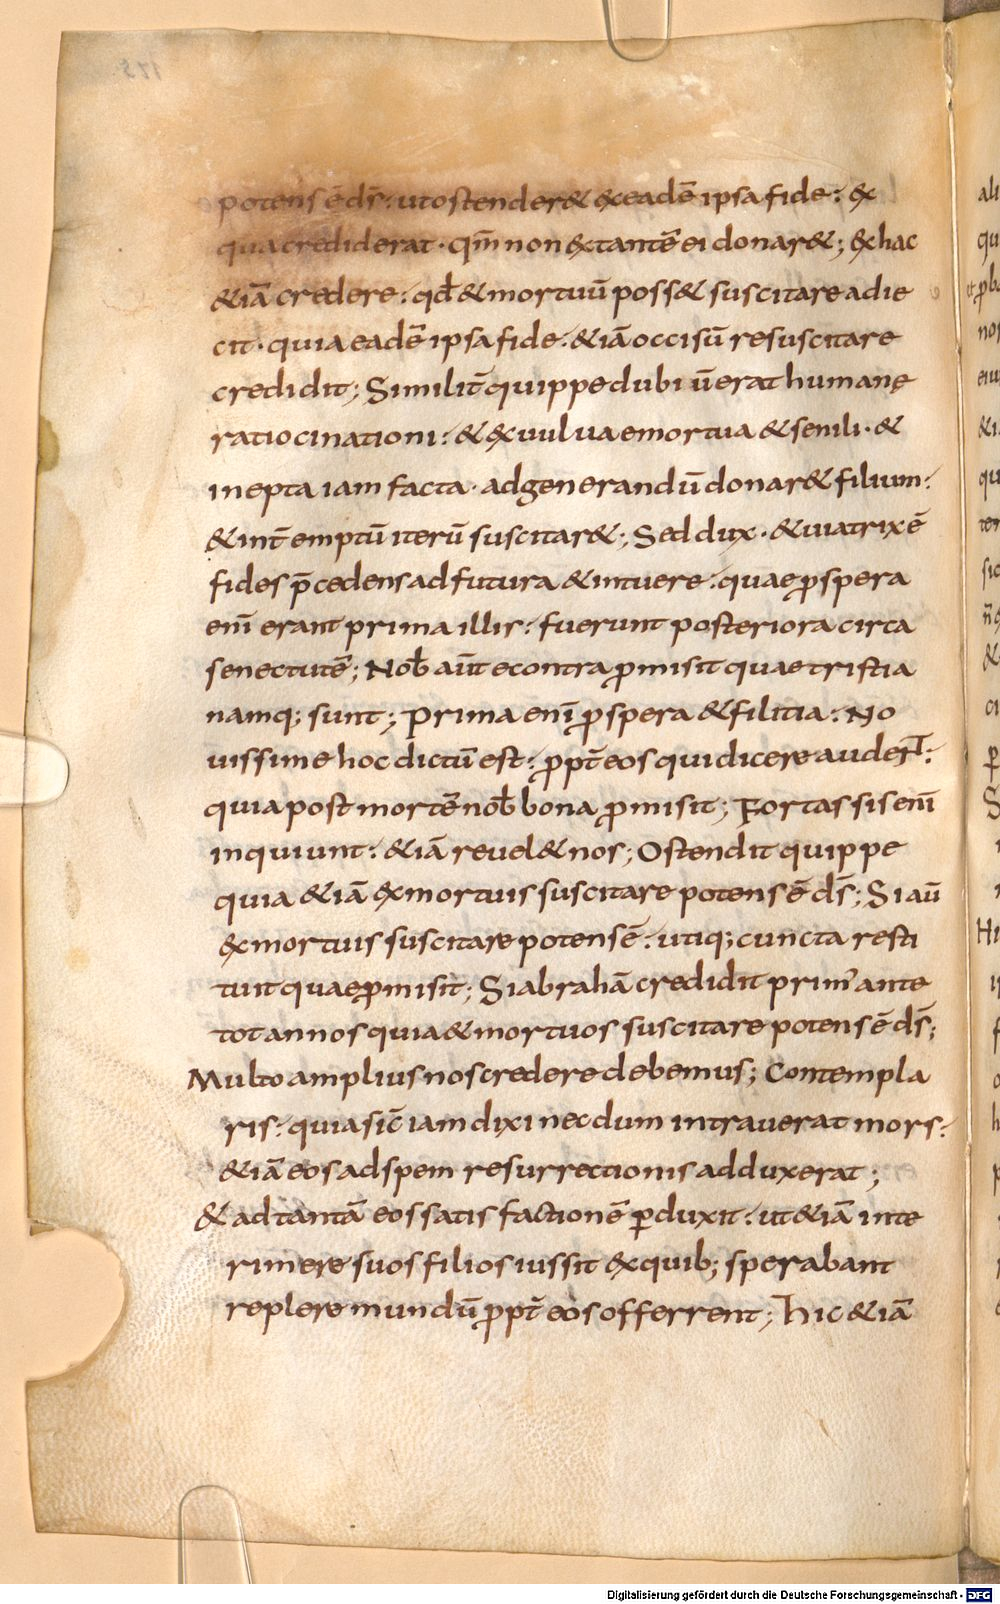 potens ē ds̄. ut ostender& &eadē ipsa fide. ex
qua crediderat. qm̄ non extantē ei donar&; ex hac
&iā credere. qd̄ & mortuū poss& suscitare adie
cit. quia eadē ipsa fide. &iā occisū resuscitare
credidit; Similit̄ quippe dubiū erat humanę
ratiocinationi. & ex uulua emortua & senili. &
inepta iam facta. ad generandū donar& filium.
& int̄emptū iterū suscitar&; Sed dux. & uiatrix ē
fides p̄cedens ad futura & intuere. quae prospera
enī erant prima illis. fuerunt posteriora circa
senectutē; Nob̄ aūt econtra promisit quae tristia
namq; sunt; Prima enī prospera & filitia. No
uissime hoc dictū est. propt̄ eos qui dicere audent.
quia post mortē nob̄ bona promisit; Fortassis enī
inquiunt. &iā reuel& nos; Ostendit quippe
quia &iā ex mortuis suscitare potens ē ds̄; Si aū
ex mortuis suscitare potens ē. utiq; cuncta resti
tuit quae promisit; Si abrahā credidit primꝰ ante
tot annos quia & mortuos suscitare potens ē ds̄;
Multo amplius nos credere debemus; Contempla
ris. quia sic̄ iam dixi necdum intrauerat mors.
&iā eos ad spem resurrectionis adduxerat;
& ad tantā eos satisfactionē perduxit. ut &iā inte
rimere suos filios iussit ex quib; sperabant
replere mundū propt̄ eos offerrent; Hic &iā
Digitalisierung gefördert durch die Deutsche Forschungsgemeinschaft - DFG